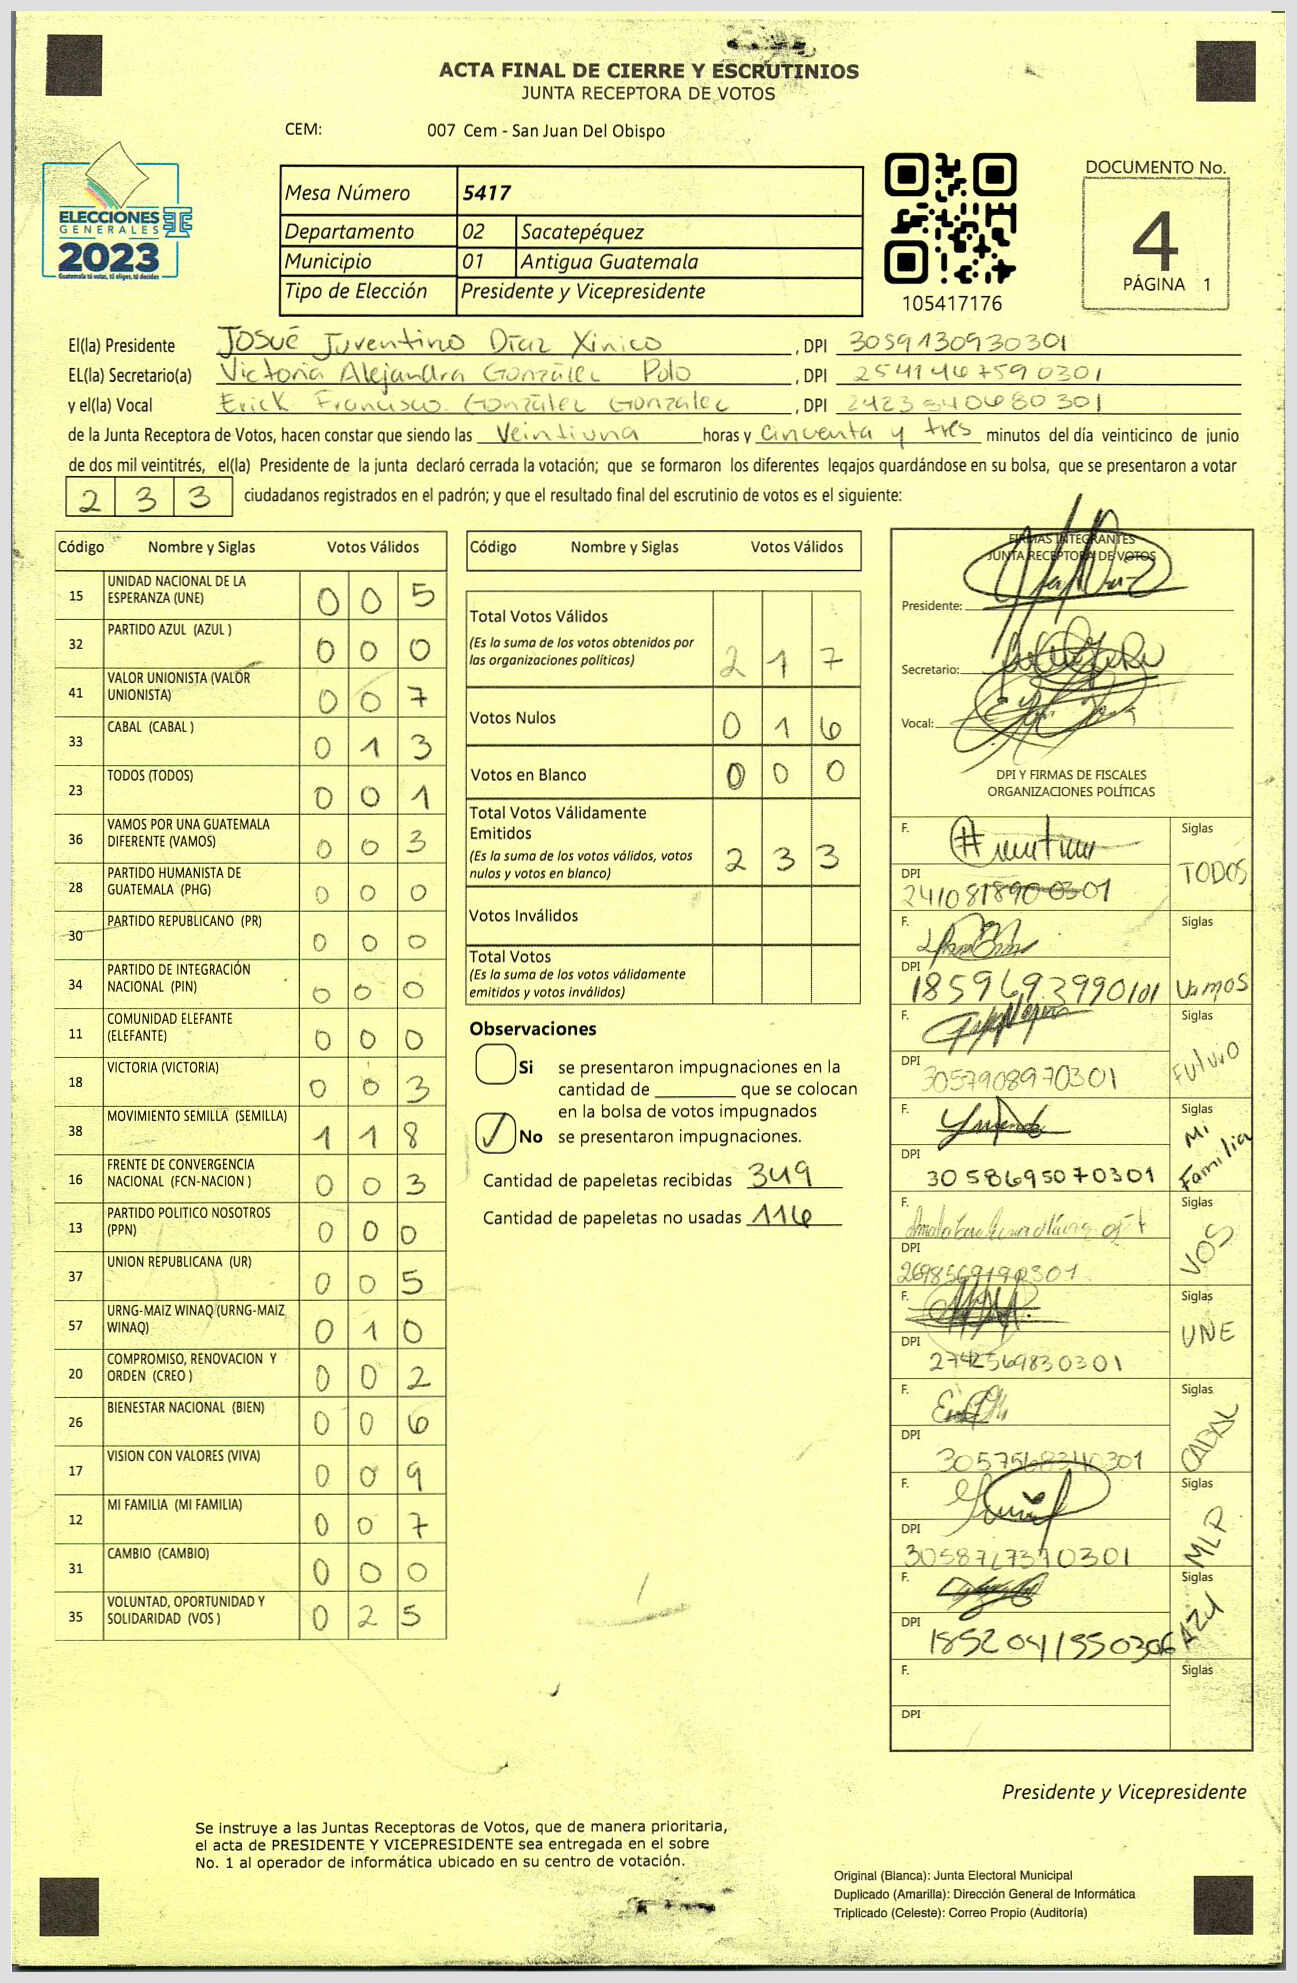 ACTA FINAL DE CIERRE Y ESCRUTINIOS
JUNTA RECEPTORA DE VOTOS
CEM: 007 Cem - San Juan Del Obispo
ELECCIONES
GENERALES
2023
Guatemala tú votas, tú eliges, tú decides
Mesa Número 5417
Departamento 02 Sacatepéquez
Municipio 01 Antigua Guatemala
Tipo de Elección Presidente y Vicepresidente
105417176
DOCUMENTO No.
4
PÁGINA 1
El(la) Presidente Josué Juventino Díaz Xinico, DPI 3059130930301
EL(la) Secretario(a) Victoria Alejandra González Polo, DPI 2541467590301
y el(la) Vocal Erick Francisco González González, DPI 2423340680301
de la Junta Receptora de Votos, hacen constar que siendo las Veintiuna horas y cincuenta y tres minutos del día veinticinco de junio
de dos mil veintitrés, el(la) Presidente de la junta declaró cerrada la votación; que se formaron los diferentes legajos guardándose en su bolsa, que se presentaron a votar
2 3 3 ciudadanos registrados en el padrón; y que el resultado final del escrutinio de votos es el siguiente:
Código Nombre y Siglas Votos Válidos
15 UNIDAD NACIONAL DE LA ESPERANZA (UNE) 0 0 5
32 PARTIDO AZUL (AZUL ) 0 0 0
41 VALOR UNIONISTA (VALOR UNIONISTA) 0 0 7
33 CABAL (CABAL ) 0 1 3
23 TODOS (TODOS) 0 0 1
36 VAMOS POR UNA GUATEMALA DIFERENTE (VAMOS) 0 0 3
28 PARTIDO HUMANISTA DE GUATEMALA (PHG) 0 0 0
30 PARTIDO REPUBLICANO (PR) 0 0 0
34 PARTIDO DE INTEGRACIÓN NACIONAL (PIN) 0 0 0
11 COMUNIDAD ELEFANTE (ELEFANTE) 0 0 0
18 VICTORIA (VICTORIA) 0 0 3
38 MOVIMIENTO SEMILLA (SEMILLA) 1 1 8
16 FRENTE DE CONVERGENCIA NACIONAL (FCN-NACION ) 0 0 3
13 PARTIDO POLITICO NOSOTROS (PPN) 0 0 0
37 UNION REPUBLICANA (UR) 0 0 5
57 URNG-MAIZ WINAQ (URNG-MAIZ WINAQ) 0 1 0
20 COMPROMISO, RENOVACION Y ORDEN (CREO ) 0 0 2
26 BIENESTAR NACIONAL (BIEN) 0 0 6
17 VISION CON VALORES (VIVA) 0 0 9
12 MI FAMILIA (MI FAMILIA) 0 0 7
31 CAMBIO (CAMBIO) 0 0 0
35 VOLUNTAD, OPORTUNIDAD Y SOLIDARIDAD (VOS ) 0 2 5
Código Nombre y Siglas Votos Válidos
Total Votos Válidos
(Es la suma de los votos obtenidos por
las organizaciones politicas) 2 1 7
Votos Nulos 0 1 6
Votos en Blanco 0 0 0
Total Votos Válidamente
Emitidos
(Es la suma de los votos válidos, votos
nulos y votos en blanco) 2 3 3
Votos Inválidos
Total Votos
(Es la suma de los votos válidamente
emitidos y votos inválidos)
Observaciones
Si se presentaron impugnaciones en la
cantidad de que se colocan
en la bolsa de votos impugnados
No se presentaron impugnaciones.
Cantidad de papeletas recibidas 349
Cantidad de papeletas no usadas 116
FIRMAS INTEGRANTES
JUNTA RECEPTORA DE VOTOS
Presidente:
Secretario:
Vocal:
DPI Y FIRMAS DE FISCALES
ORGANIZACIONES POLÍTICAS
F. Siglas TODOS
DPI 2410818900301
F. Siglas Vamos
DPI 1859693990101
F. Siglas Fulvio
DPI 3057908970301
F. Siglas Mi Familia
DPI 3058695070301
F. Siglas VOS
DPI 2698569190301
F. Siglas UNE
DPI 2742569830301
F. Siglas CABAL
DPI 3057568340301
F. Siglas MLP
DPI
F. Siglas AZUL
DPI 1852041550306
F. Siglas
DPI
Presidente y Vicepresidente
Se instruye a las Juntas Receptoras de Votos, que de manera prioritaria,
el acta de PRESIDENTE Y VICEPRESIDENTE sea entregada en el sobre
No. 1 al operador de informática ubicado en su centro de votación.
Original (Blanca): Junta Electoral Municipal
Duplicado (Amarilla): Dirección General de Informática
Triplicado (Celeste): Correo Propio (Auditoría)